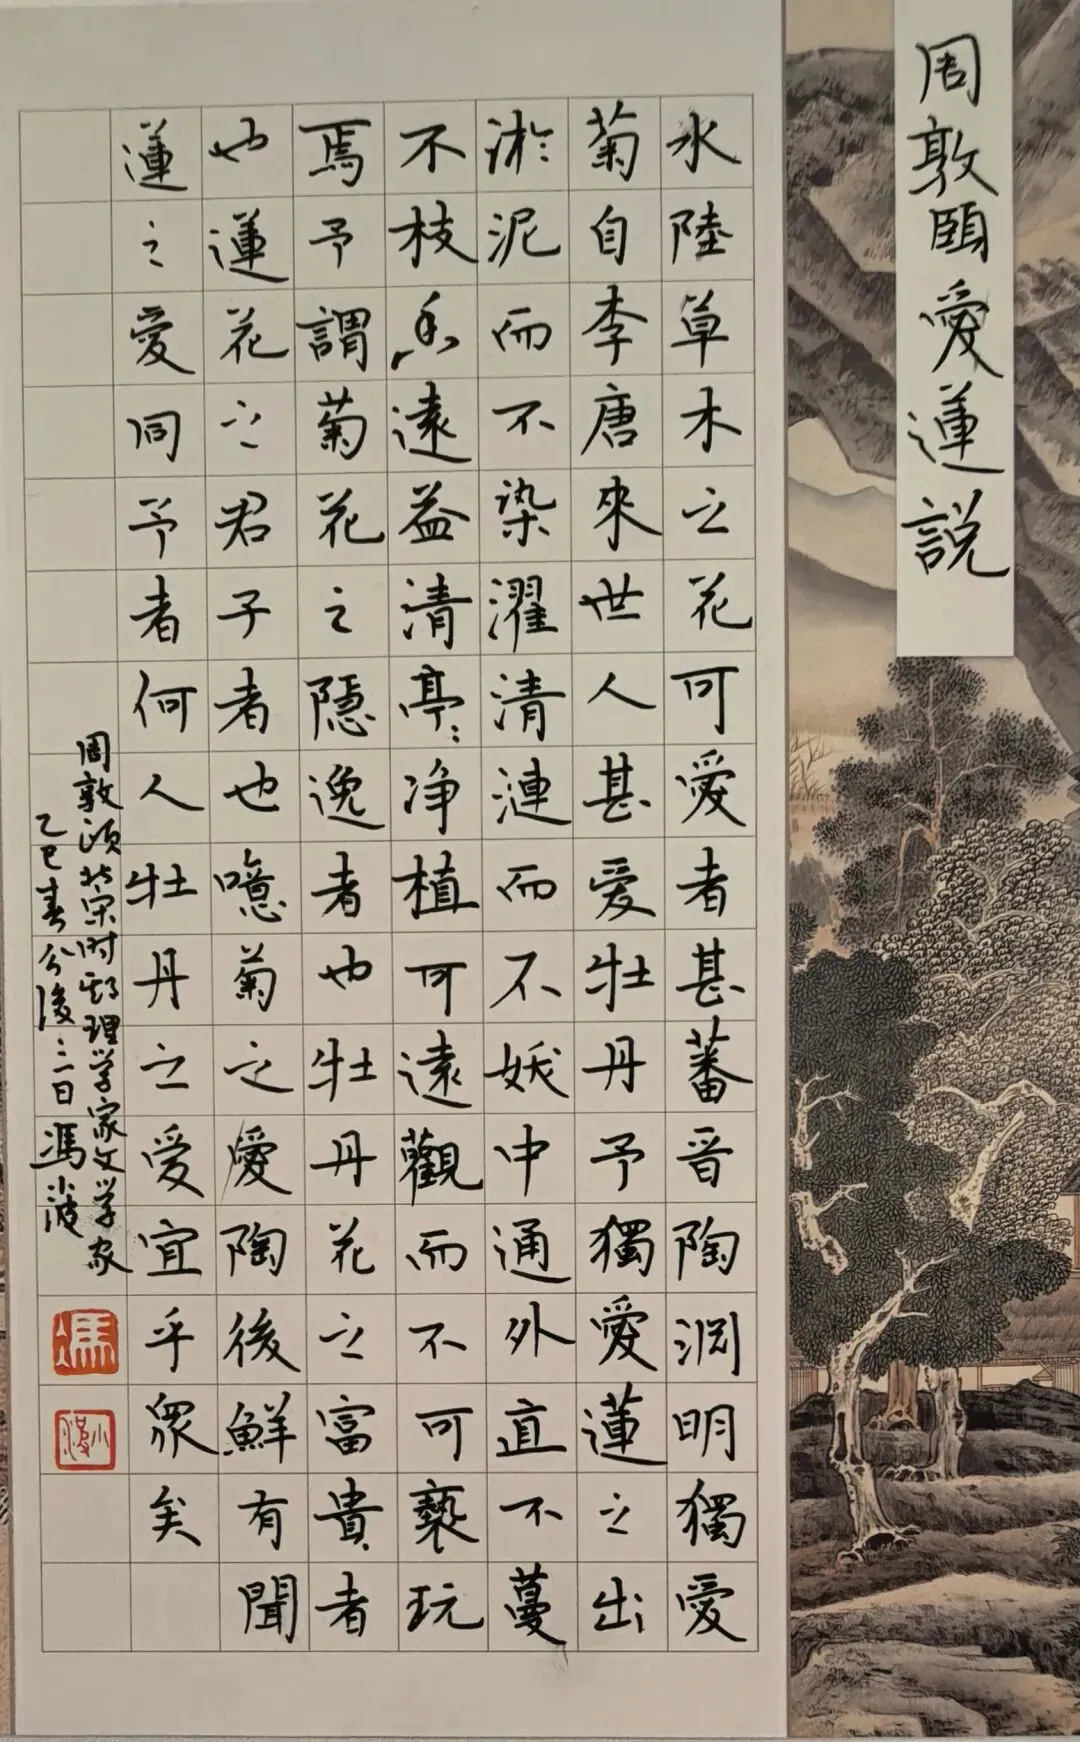 周敦頤愛蓮説
水陸草木之花可愛者甚蕃晉陶淵明獨愛
菊自李唐來世人甚爱牡丹予獨愛蓮之出
淤泥而不染濯清漣而不妖中通外直不蔓
不枝香遠益清亭:净植可遠觀而不可褻玩
焉予謂菊花之隱逸者也牡丹花之富貴者
也蓮花之君子者也噫菊之愛陶後鮮有聞
蓮之愛同予者何人牡丹之爱宜乎眾矣
周敦頤北宋時期理学家文学家
乙巳春分後三日馮小波
馮
小波